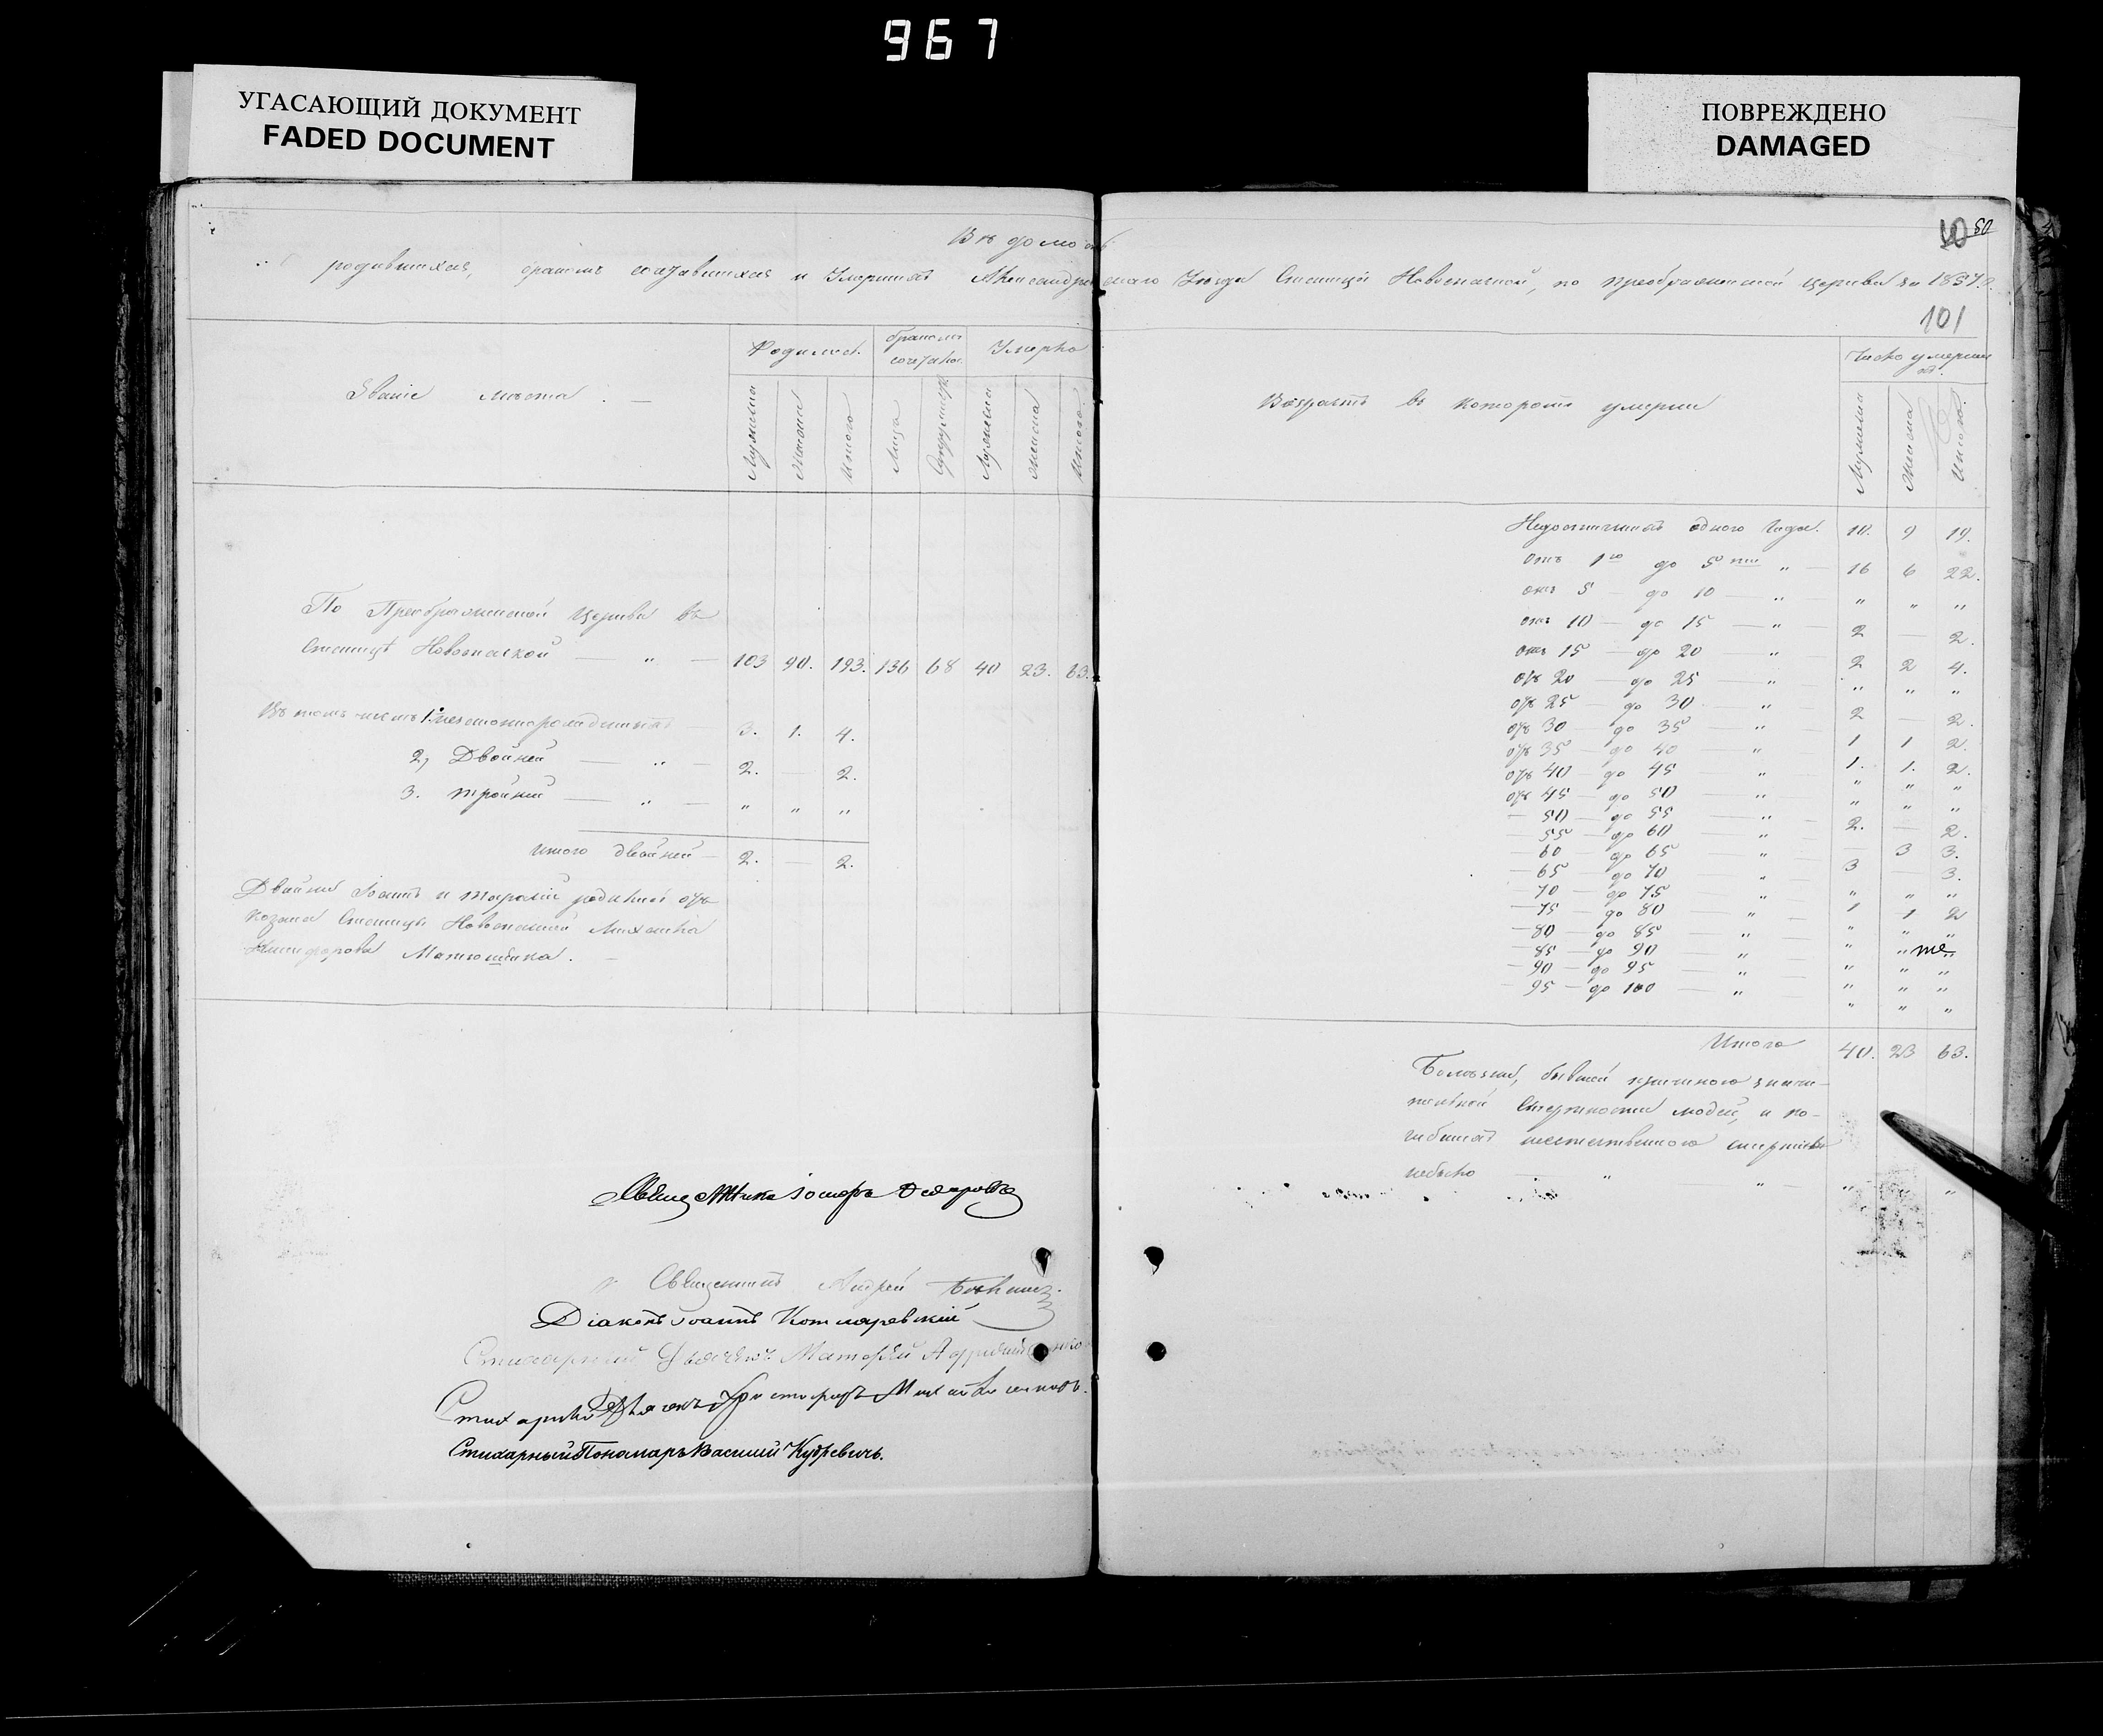 967
УГАСАЮЩИЙ ДОКУМЕНТ
FADED DOCUMENT
ПОВРЕЖДЕНО
DAMAGED
50
Вѣдомость
родившихся, бракомъ сочетавшихся и Умершихъ Александровскаго Уѣзда Станицы Новоспаской, по преображенской церкви за 1857 г.
101
Званіе мѣста
Родилось
бракомъ сочетало.
Умерло
Мужеска
Женска
Итого
Лица
Супружест
Мужеска
женска
Итого.
По Преображенской Церкви въ
Станицѣ Новоспаской — „ — 103 90. 193. 136 68 40 23. 63.
Въ томъ числѣ 1. незаконнорожденныхъ 3. 1. 4.
2, Двойней — „ — 2. — 2.
3. тройней — „ — „ „ „
Итого двойней — 2. — 2.
Двойни Іоаннъ и родились отъ
козака Станицы Новоспаской Михаила
Никифорова
Іосифъ
Священникъ Андрей
Діаконъ Іоаннъ Котляревскій
Стихарный Дьячекъ Матфей
Стихарный Дьячекъ Христофоръ
Стихарный Пономарь Василій Кудревичь.
Возрастъ въ которомъ умерли
Число умершихъ.
Мужеска
Женска
Итого.
Недостигшихъ одного Года. 10. 9 19.
Отъ 1го до 5ти „ — 16 6 22.
отъ 5 — до 10 — „ „ „ „
отъ 10 — до 15 — „ 2 — 2.
отъ 15 — до 20 — „ 2 2 4.
отъ 20 — до 25 — „ „ „ „
отъ 25 — до 30 — „ 2 — 2.
отъ 30 — до 35 — „ 1 1 2.
отъ 35 — до 40 — „ 1. 1. 2.
отъ 40 — до 45 — „ „ „ „
отъ 45 — до 50 — „ „ „ „
— 50 — до 55 — „ 2. — 2.
— 55 — до 60 — „ — 3 3.
— 60 — до 65 — „ 3 — 3.
— 65 — до 70 — „ „ „ „
— 70 — до 75 — „ 1 1 2
— 75 — до 80 — „ „ „ „
— 80 — до 85 — „ „ „
— 85 — до 90 — „ „ „ „
— 90 — до 95 — „ „ „ „
— 95 — до 100 — „ „ „ „
Итого 40. 23 63.
Болѣзней, бывшей причиною значи-
тельной смертности людей, и по-
гибшихъ неестественною смертью
небыло — „ „ — „ „